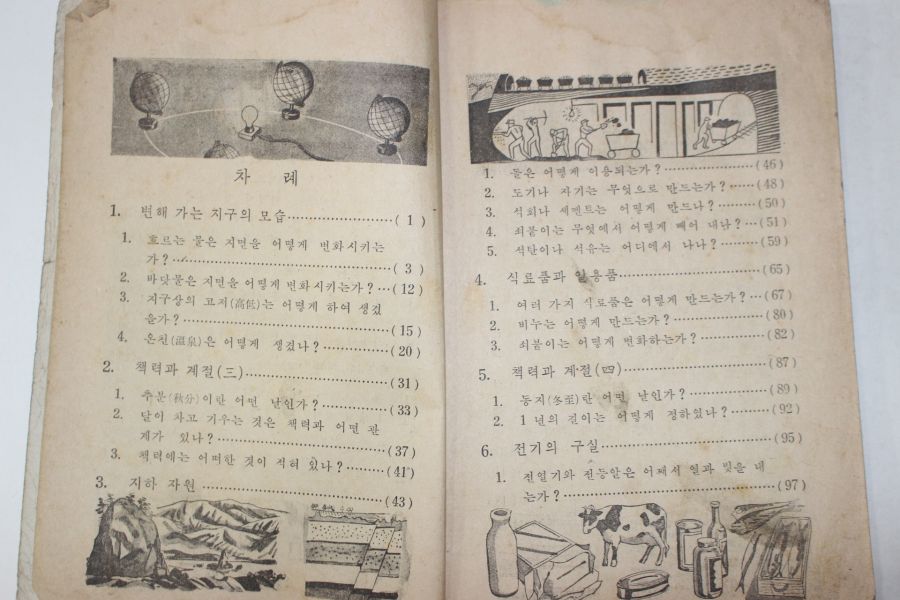 차 례
1. 변해 가는 지구의 모습 (1)
1. 흐르는 물은 지면을 어떻게 변화시키는
가? (3)
2. 바닷물은 지면을 어떻게 변화시키는가? (12)
3. 지구상의 고저(高低)는 어떻게 하여 생겼
을가? (15)
4. 온천(溫泉)은 어떻게 생겼나? (20)
2. 책력과 계절(三) (31)
1. 추분(秋分)이란 어떤 날인가? (33)
2. 달이 차고 기우는 것은 책력과 어떤 관
계가 있나? (37)
3. 책력에는 어떠한 것이 적혀 있나? (41)
3. 지하 자원 (43)
1. 돌은 어떻게 이용되는가? (46)
2. 도기나 자기는 무엇으로 만드는가? (48)
3. 석회나 세멘트는 어떻게 만드나? (50)
4. 쇠붙이는 무엇에서 어떻게 빼어 내나? (51)
5. 석탄이나 석유는 어디에서 나나? (59)
4. 식료품과 일용품 (65)
1. 여러 가지 식료품은 어떻게 만드는가? (67)
2. 비누는 어떻게 만드는가? (80)
3. 쇠붙이는 어떻게 변화하는가? (82)
5. 책력과 계절(四) (87)
1. 동지(冬至)란 어떤 날인가? (89)
2. 1년의 길이는 어떻게 정하였나? (92)
6. 전기의 구실 (95)
1. 전열기와 전등알은 어째서 열과 빛을 내
는가? (97)